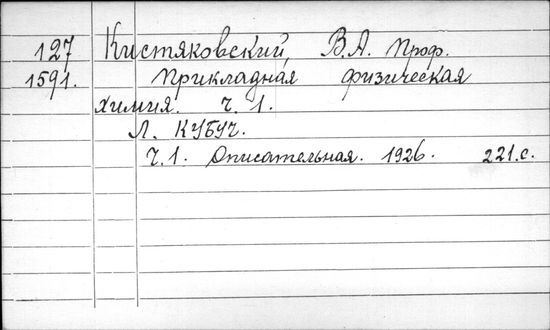 127 Кистяковский, В.А. Проф.
1591. Прикладная физическая
химия. Ч. 1.
Л. КУБУЧ.
Ч.1. Описательная. 1926. 221.с.